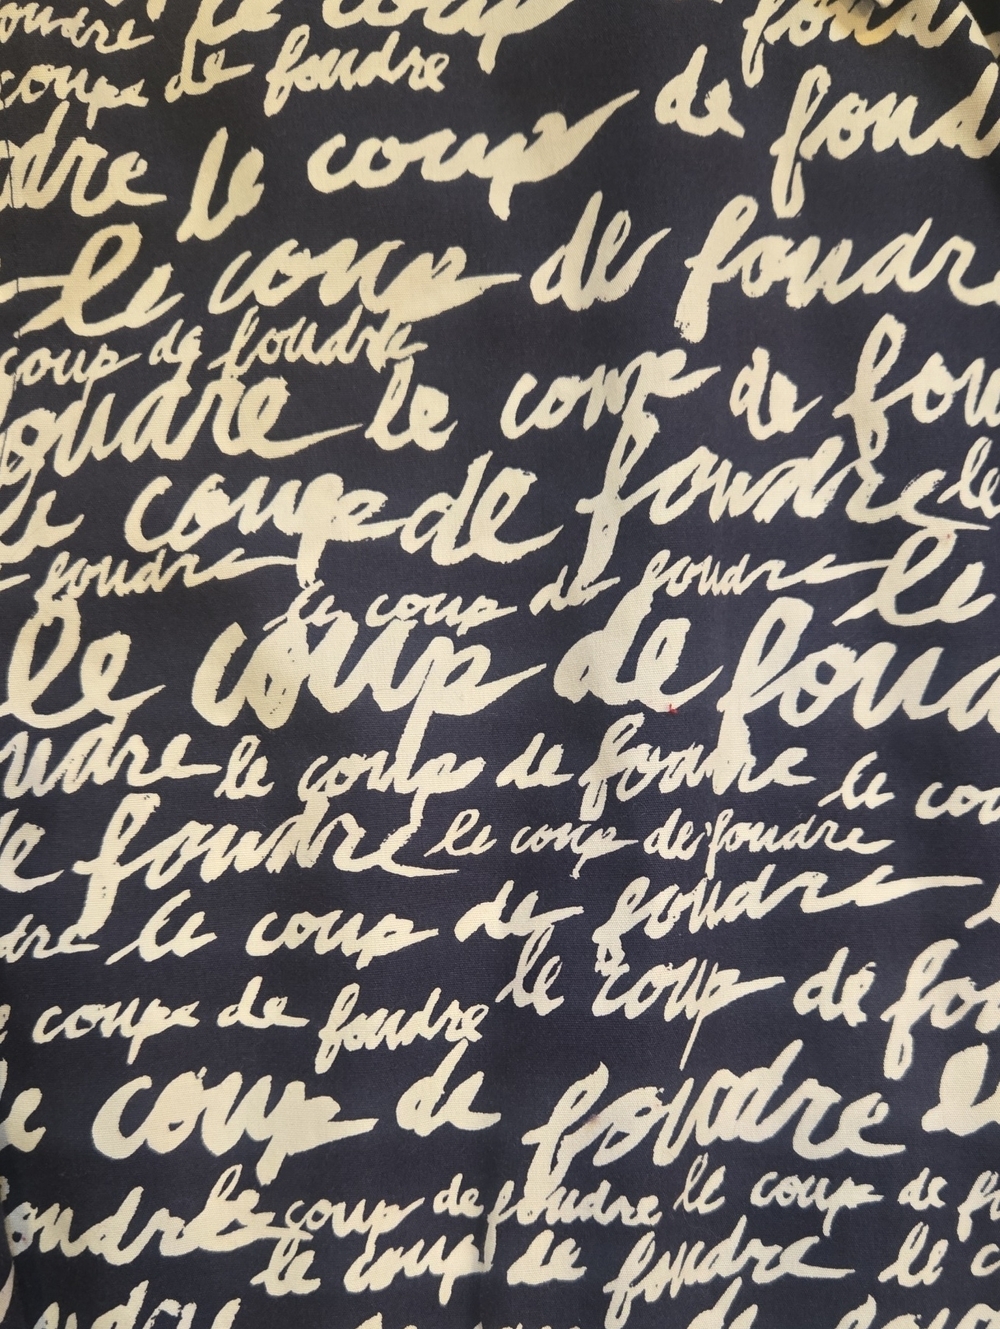 oudre le coup foudr
coupe de foudre de foud
dre le coup
le coup de foudre
coup de foudre
foudre le coup de fou
le coup de foudre le
foudre le coup de foudre le
le coup de foud
udre le coup de foudre le cou
de foudre le coup de foudre
dre le coup de foudre
le coup de fou
e coupe de foudre
e coup de foudre le
oudre le coup de foudre le coup de f
le coup de foudre le c